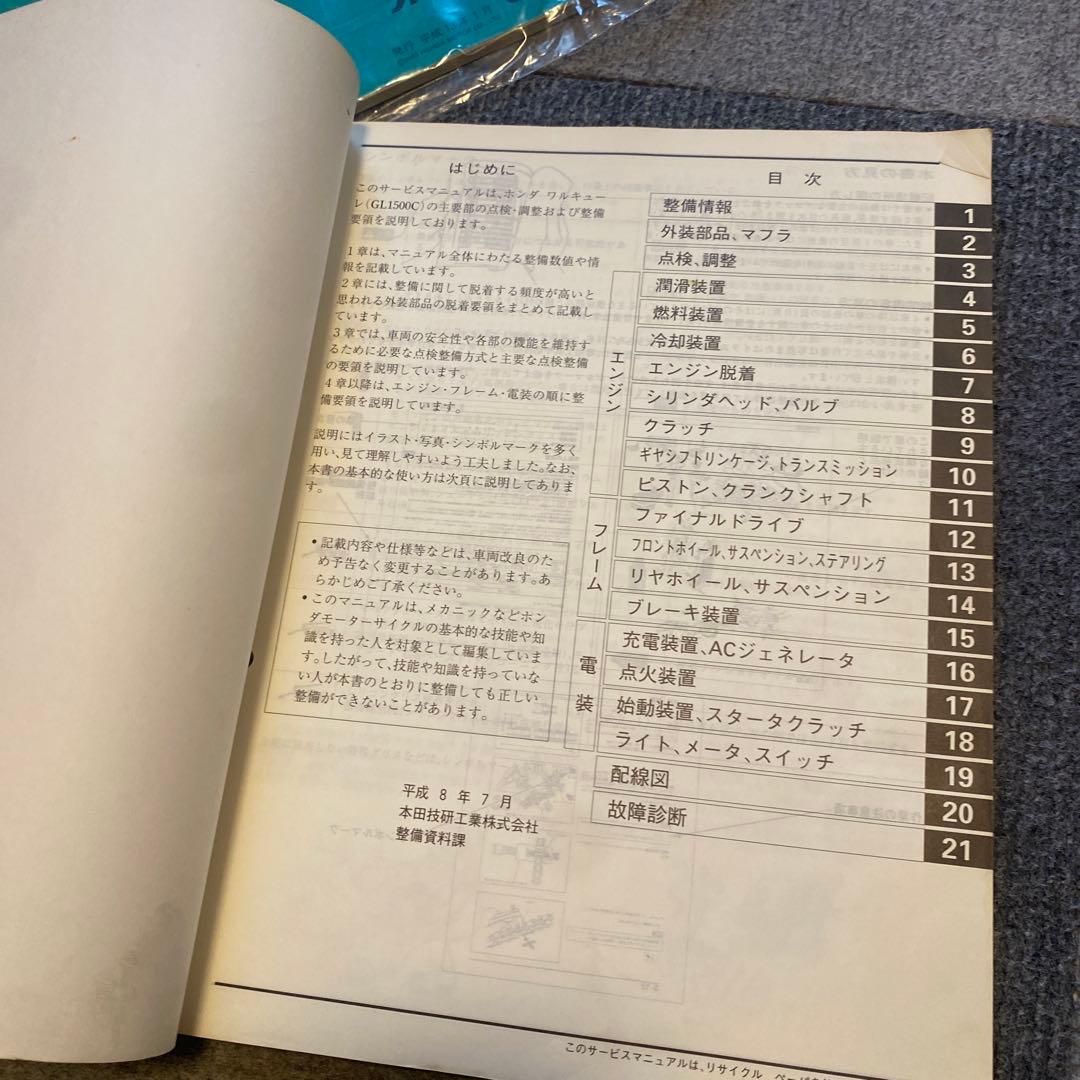 はじめに
このサービスマニュアルは、ホンダ ワルキュー
レ(GL1500C)の主要部の点検・調整および整備
要領を説明しております。
1章は、マニュアル全体にわたる整備数値や情
報を記載しています。
2章には、整備に関して脱着する頻度が高いと
思われる外装部品の脱着要領をまとめて記載し
ています。
3章では、車両の安全性や各部の機能を維持す
るために必要な点検整備方式と主要な点検整備
の要領を説明しています。
4章以降は、エンジン・フレーム・電装の順に整
備要領を説明しています。
説明にはイラスト・写真・シンボルマークを多く
用い、見て理解しやすいよう工夫しました。なお、
本書の基本的な使い方は次頁に説明してありま
す。
• 記載内容や仕様等などは、車両改良のた
め予告なく変更することがあります。あ
らかじめご了承ください。
• このマニュアルは、メカニックなどホン
ダモーターサイクルの基本的な技能や知
識を持った人を対象として編集していま
す。したがって、技能や知識を持っていな
い人が本書のとおりに整備しても正しい
整備ができないことがあります。
平成 8 年 7 月
本田技研工業株式会社
整備資料課
目 次
整備情報 1
外装部品、マフラ 2
点検、調整 3
エンジン
潤滑装置 4
燃料装置 5
冷却装置 6
エンジン脱着 7
シリンダヘッド、バルブ 8
クラッチ 9
ギヤシフトリンケージ、トランスミッション 10
ピストン、クランクシャフト 11
フレーム
ファイナルドライブ 12
フロントホイール、サスペンション、ステアリング 13
リヤホイール、サスペンション 14
ブレーキ装置 15
電装
充電装置、ACジェネレータ 16
点火装置 17
始動装置、スタータクラッチ 18
ライト、メータ、スイッチ 19
配線図 20
故障診断 21
このサービスマニュアルは、リサイクル